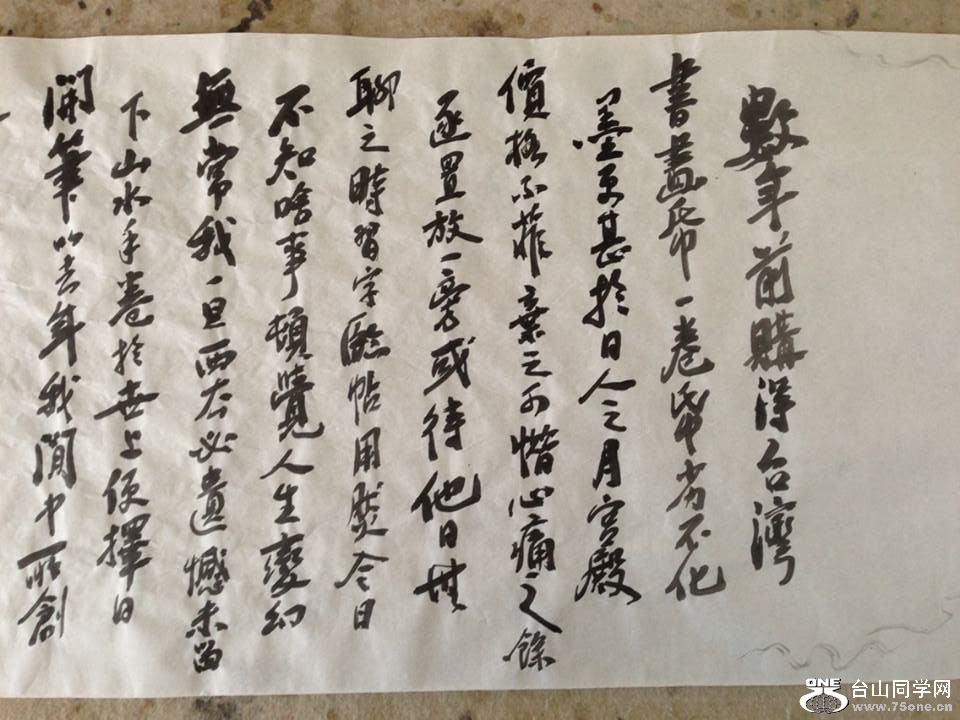 數年前購得台灣
書畫帋一卷帋劣不化
墨更甚於日人之月宮殿
價格不菲棄之可惜心痛之餘
逐置放一旁或待他日無
聊之時習字臨帖用歟今日
不知啥事頓覺人生變幻
無常我一旦西去必遺憾未留
下山水手卷於世上便擇日
開筆以去年我閒中所創
ONE 台山同学网
www.75one.cn